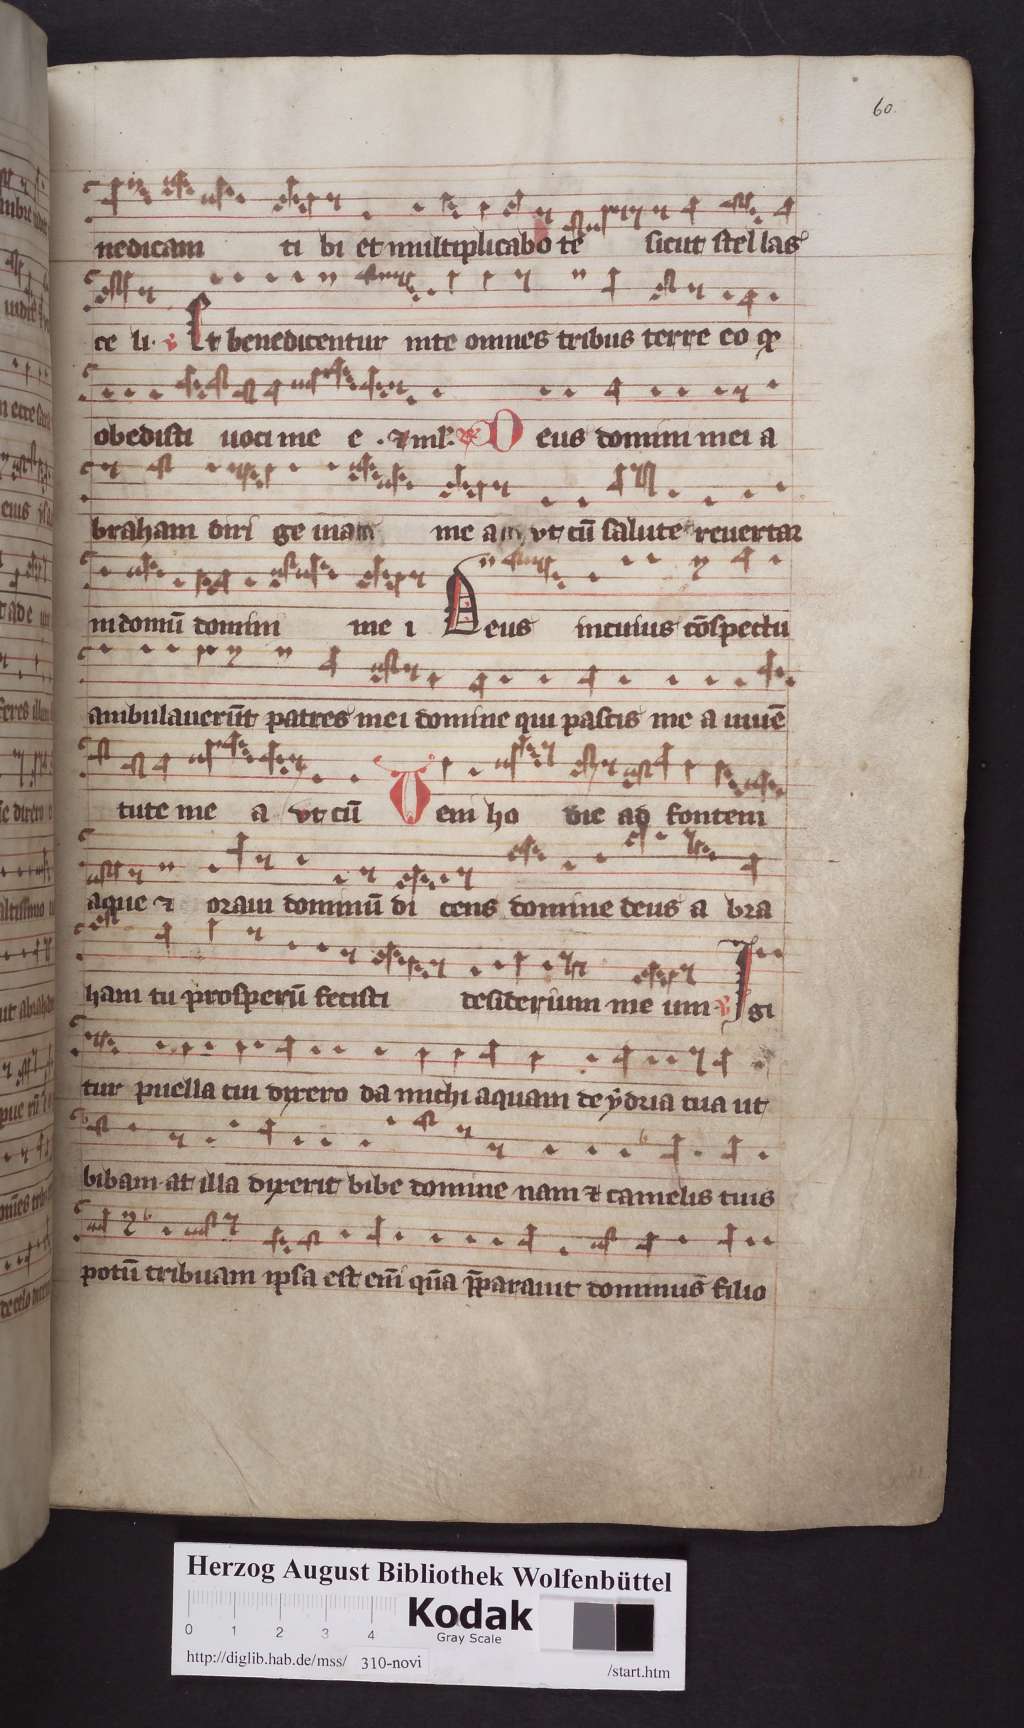 60.
nedicam ti bi et multiplicabo te sicut stel las
ce li. Et benedicentur inte omnes tribus terre eo
obedisti uoci me e. D eus domini mei a
braham diri ge uiam me am vt cū salute reuertar
in domū domini me i Deus in cuius cōspectu
ambulauerūt patres mei domine qui pascis me a iuuē
tute me a vt cū V eni ho die ad fontem
aque et oraui dominū di cens domine deus a bra
ham tu prosperū fecisti desiderium me um Igi
tur puella cui dixero da michi aquam de ydria tua ut
bibam at illa dixerit bibe domine nam et camelis tuis
potū tribuam ipsa est quā parauit dominus filio
Herzog August Bibliothek Wolfenbüttel
0 1 2 3 4
Kodak
Gray Scale
http://diglib.hab.de/mss/ 310-novi /start.htm